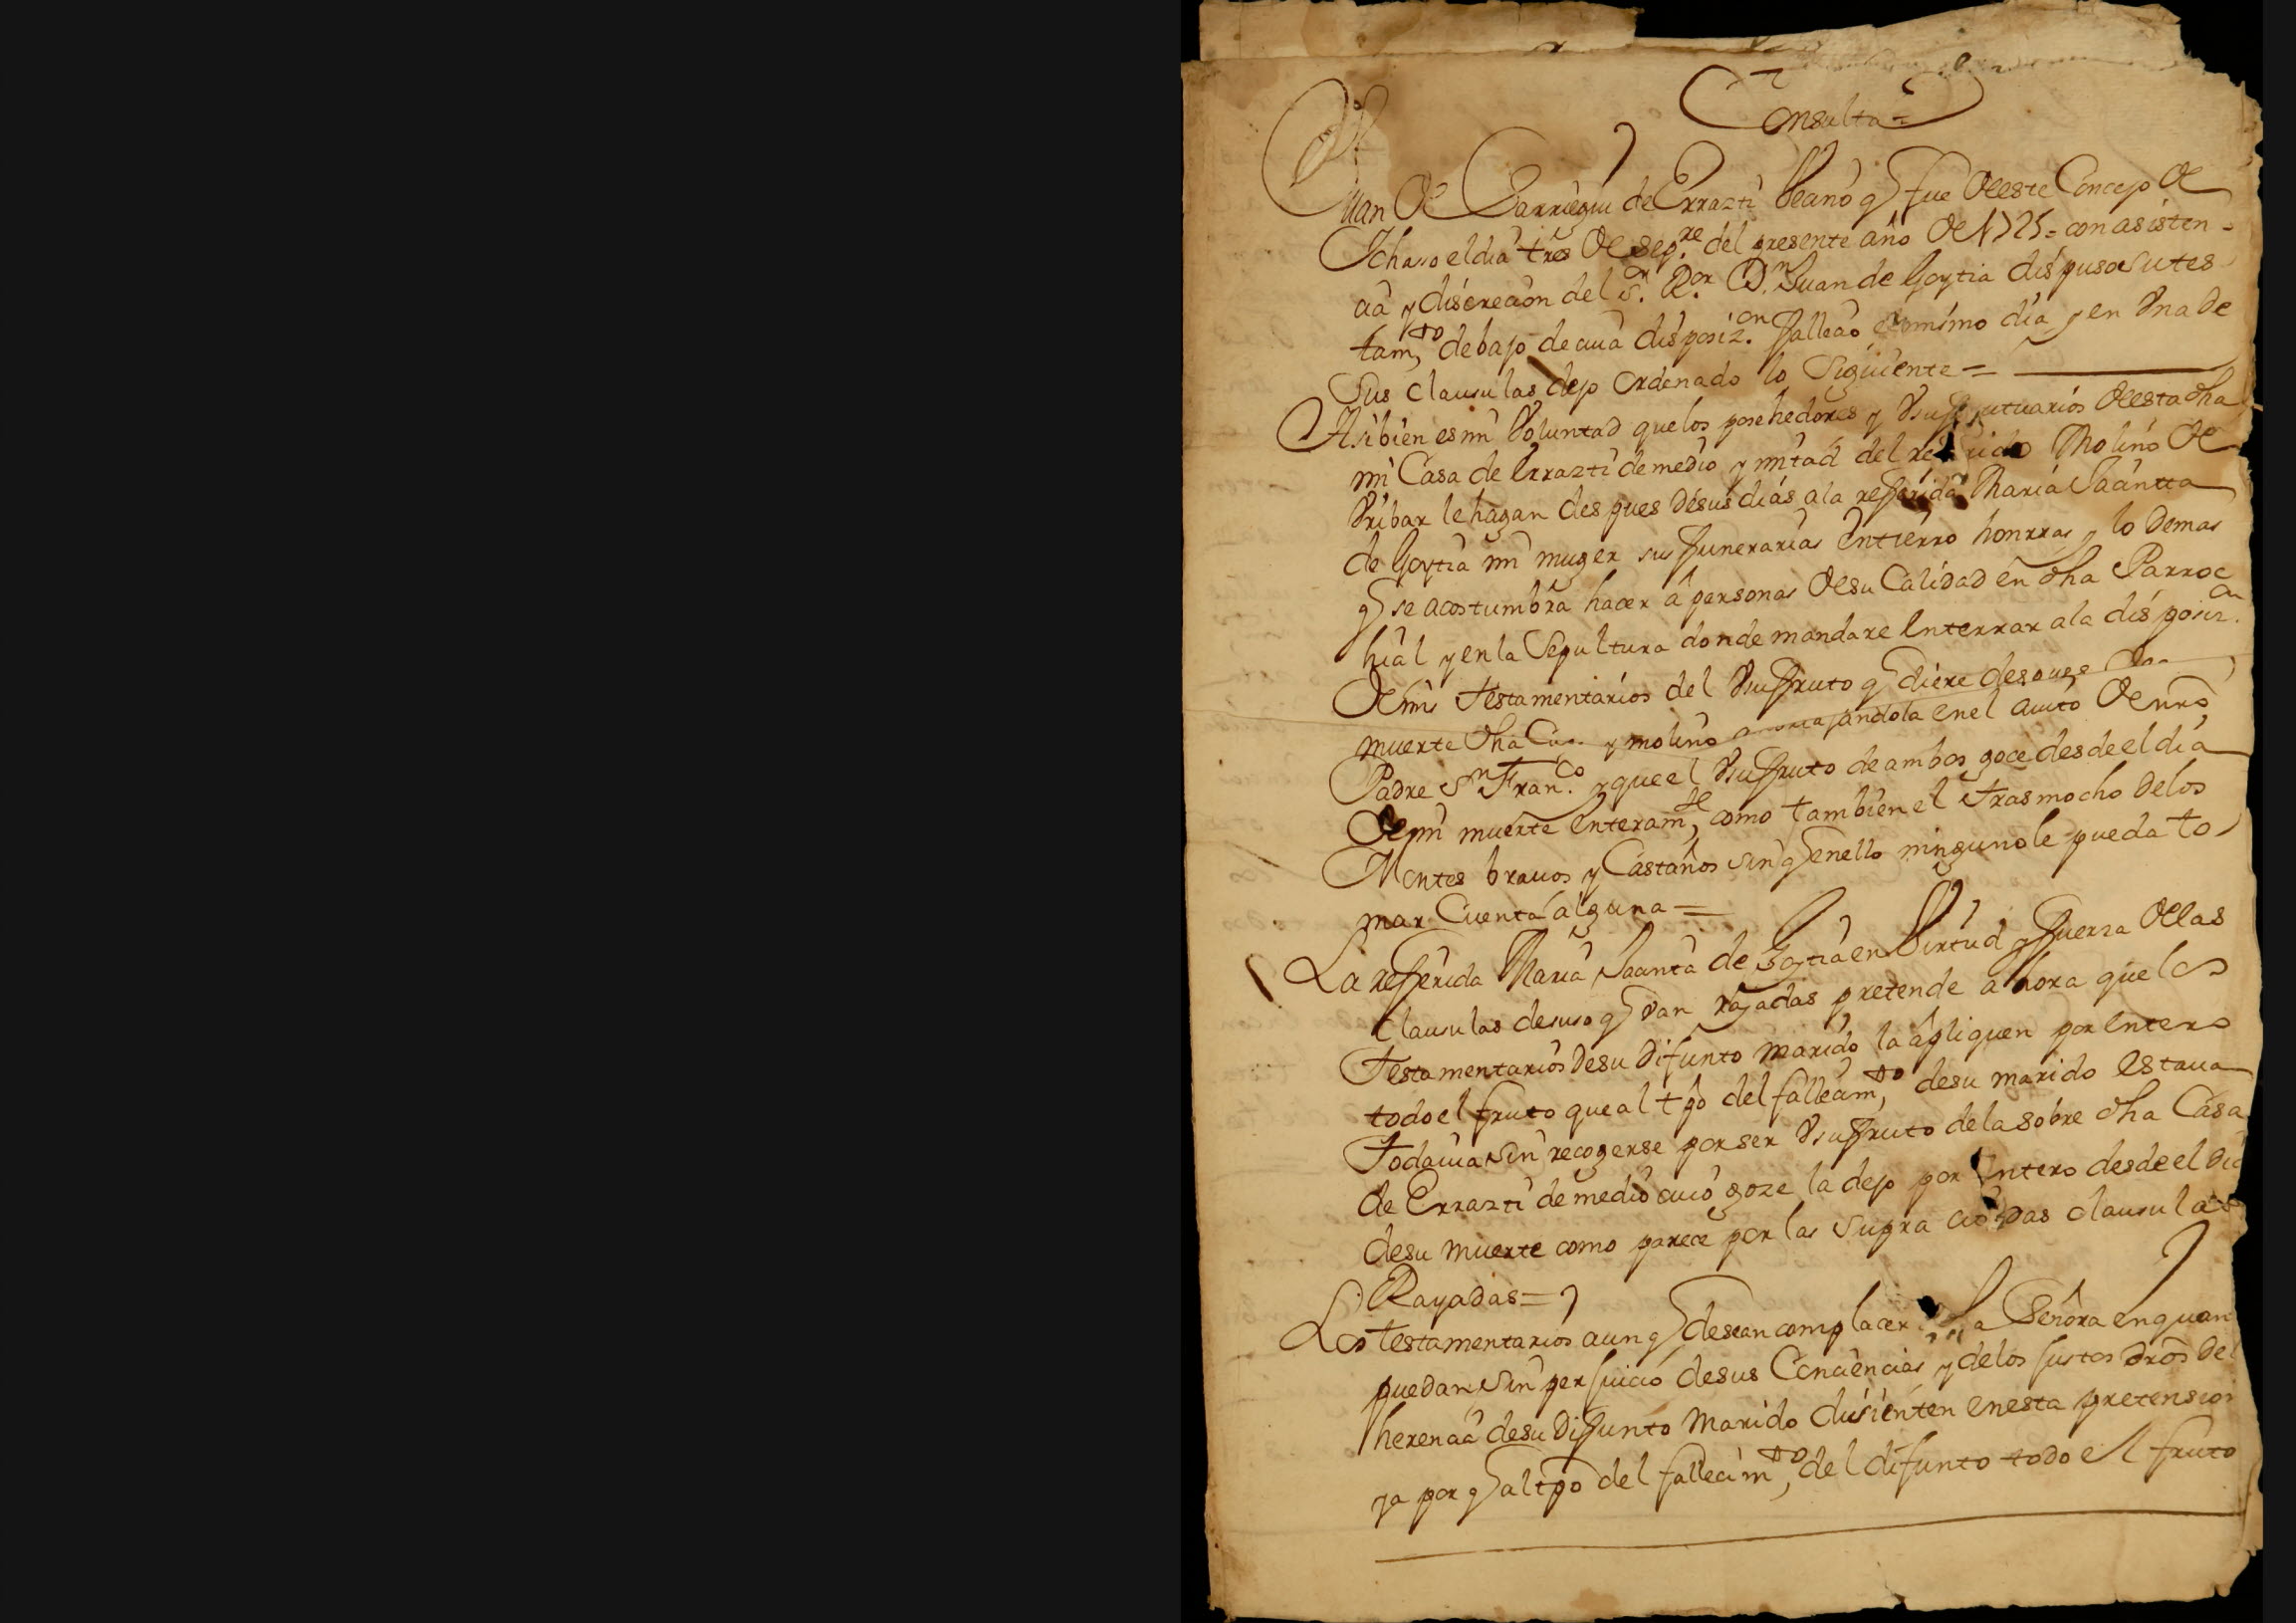 Consulta=
Juan de Barriegui de Errazti Veano q fue de este Concejo de
Ichaso el dia tres de sepre. del presente año de 1725= con asisten-
cia y discrecion del Sr. Ror. Dn. Juan de Goytia dispuso su tes
tamto, debajo de cuia disposizon. fallecio el mimo dia y en Vna de
sus clausulas dejo ordenado lo siguiente=
Asi bien es mi Voluntad que los posehedores y Vsufrutuarios de esta dha
mi Casa de Errazti de medio y mitad del referido Molino de
Vribar le hagan despues de sus dias a la referida Maria Jacinta
de Goytia mi muger sus funerarias Entierro honrras y lo demas
q se acostumbra hacer a personas de su Calidad en dha Parroc
hial y en la Sepultura donde mandare Enterrar a la disposizon.
de mis testamentarios del Vsufruto q diere despues
muerte dha Casa y molino amortajandola en el auito de nro
Padre Sn Franco. y que el Vsufruto de ambos goce desde el dia
de mi muerte enteramte, como tambien el trasmocho de los
Montes brauos y Castaños sin q en ello ninguno le pueda to
mar Cuenta alguna=
La referida Maria Jacinta de Goytia en Virtud y fuerza de las
clausulas de suso q van rayadas pretende ahora que los
testamentarios de su difunto marido la apliquen por Entero
todo el fruto que al tpo del fallecimto, de su marido estaua
todauia sin recogerse por ser Vsufruto de la sobre dha Casa
de Errazti de medio cuio goze la dejo por Entero desde el dia
de su muerte como parece por las supra citadas clausulas
Rayadas=
Los testamentarios aunq desean complacer a la Señora en quan
puedan sin perjuicio de sus Conciencias y de los justos dros de
herencia de su difunto Marido disienten en esta pretension
ya por q al tpo del fallecimto, del difunto todo el fruto